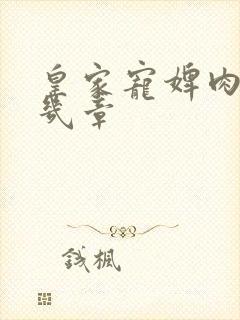 皇家寵婢肉
幾章
錢楓